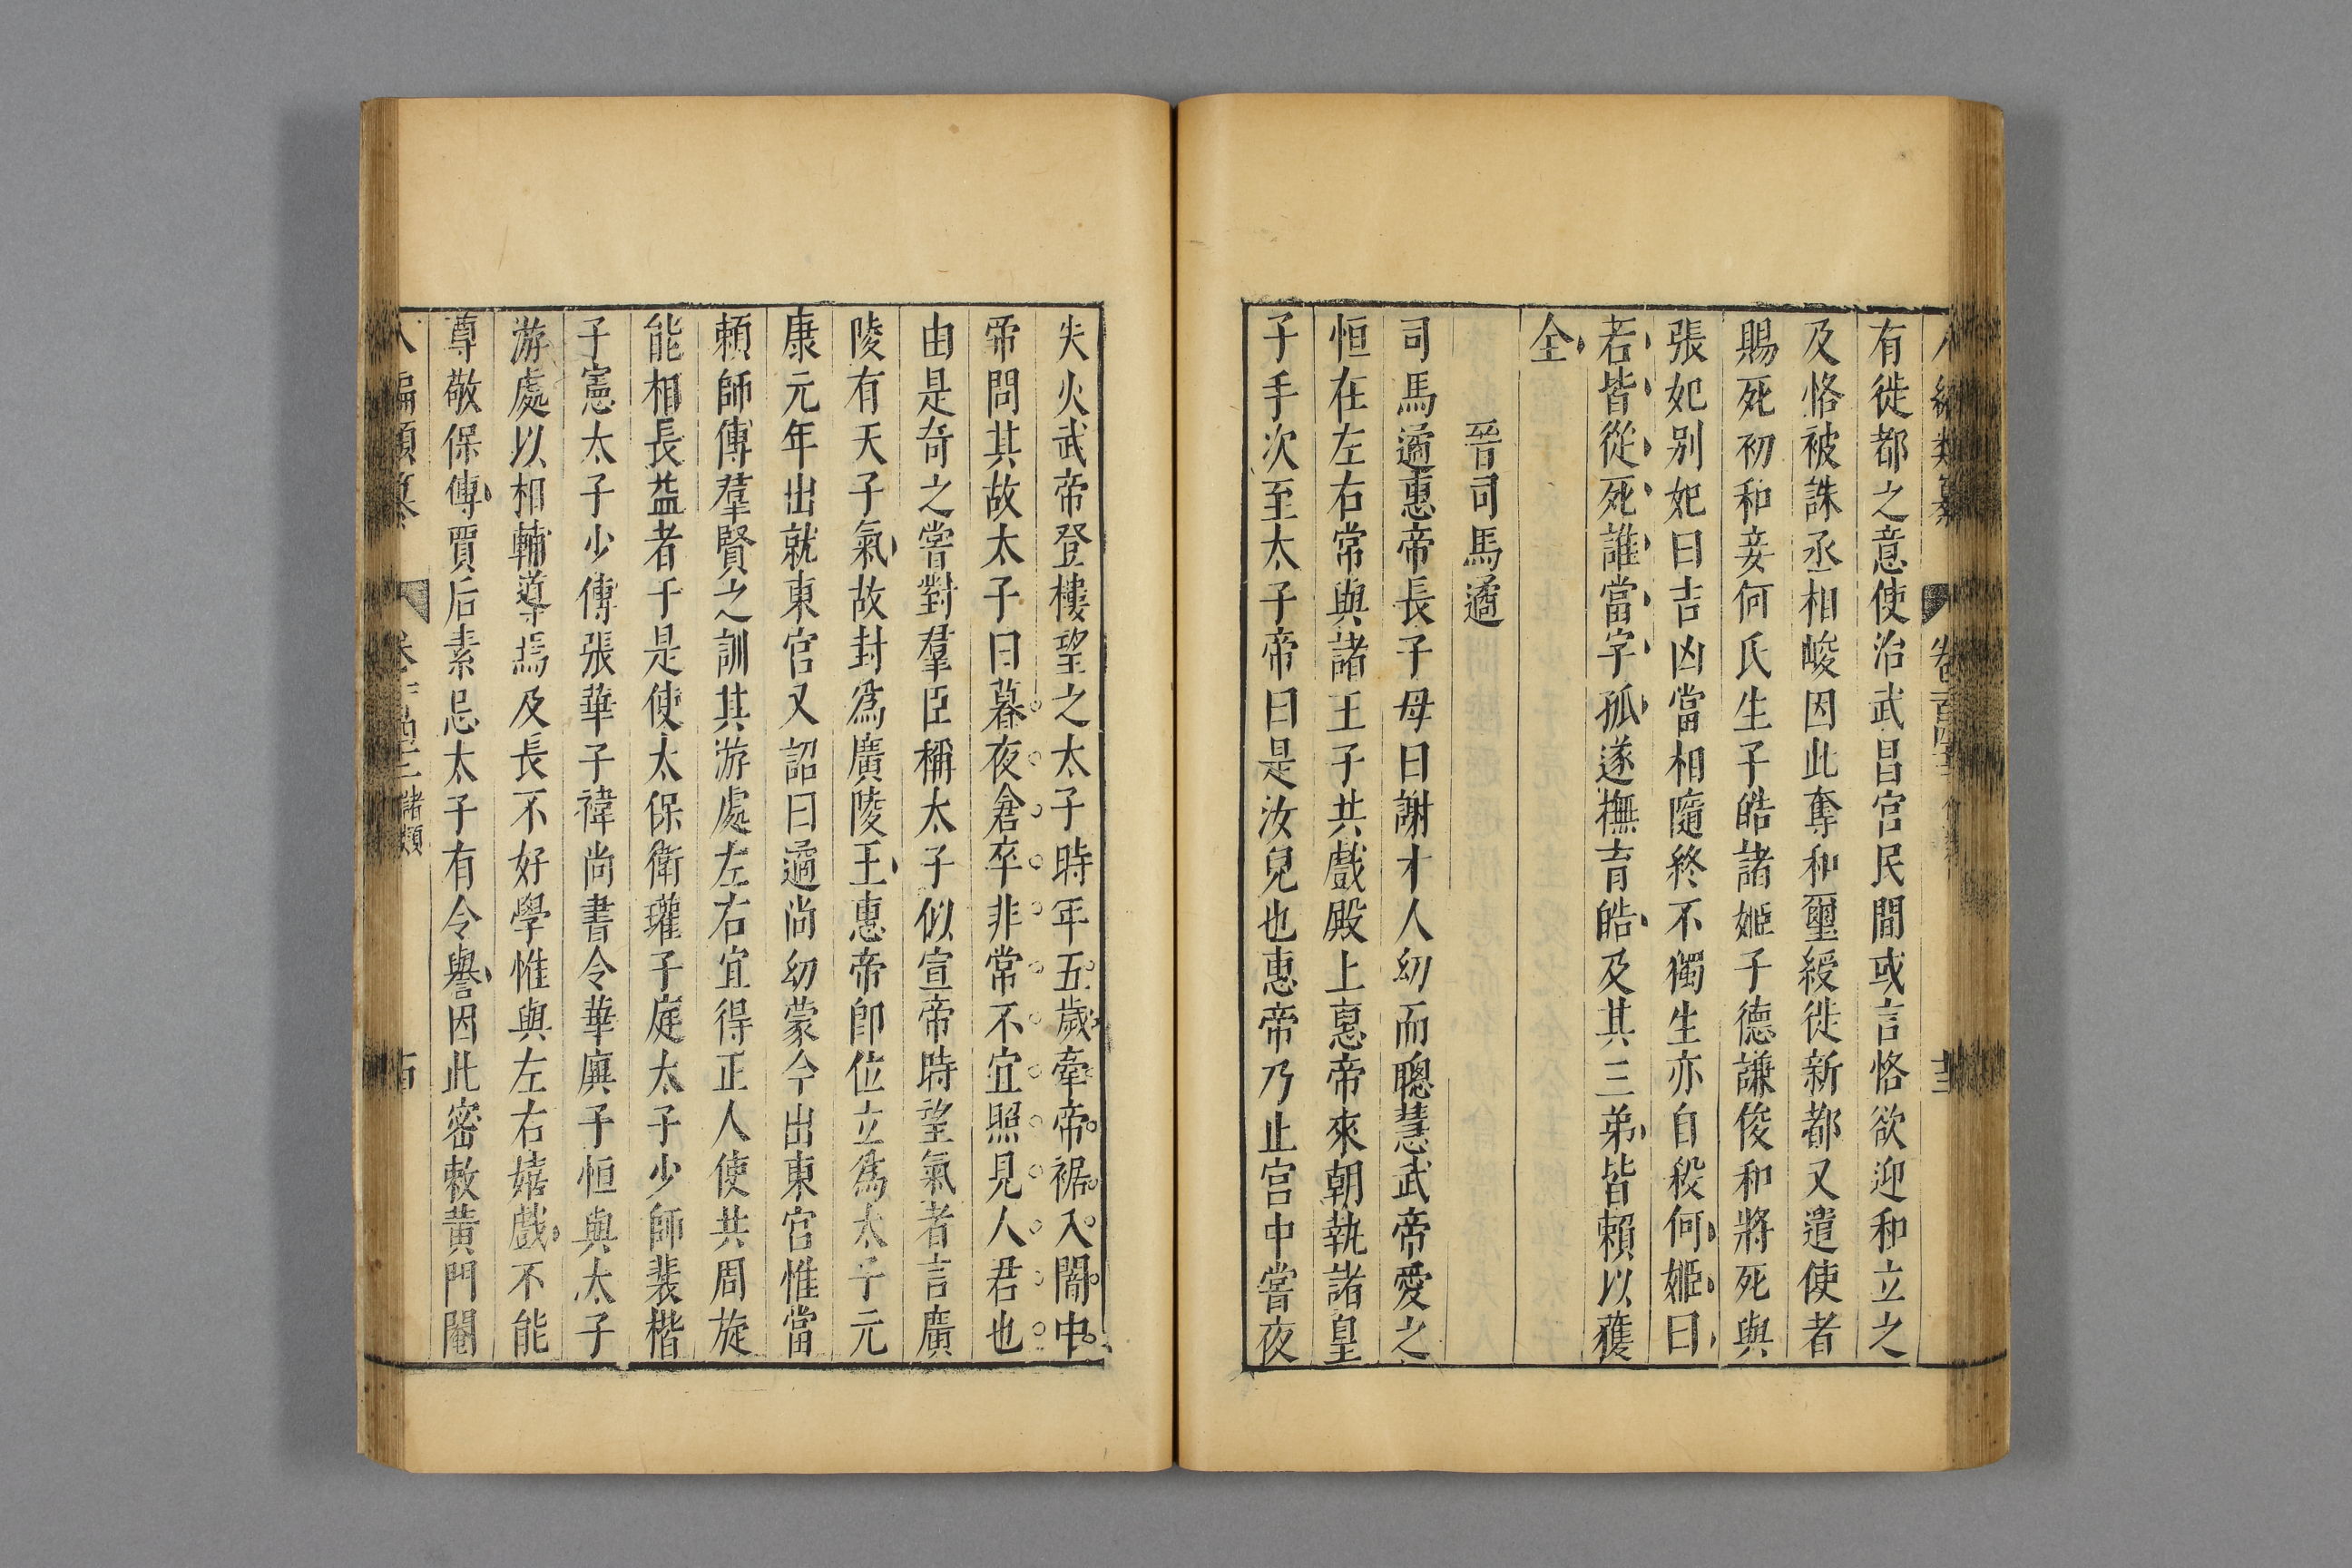 有徙都之意使治武昌宫民間或言恪欲迎和立之
及恪被誅丞相峻因此奪和璽綬徙新都又遣使者
賜死初和妾何氏生子皓諸姬子德謙俊和將死與
張妃别妃曰吉凶當相隨終不獨生亦自殺何姬曰
若皆從死誰當字孤遂撫育皓及其三弟皆賴以獲
全
晉司馬遹
司馬遹惠帝長子母曰謝才人幼而聰慧武帝愛之
恒在左右常與諸王子共戲殿上惠帝來朝執諸皇
子手次至太子帝曰是汝兒也惠帝乃止宫中嘗夜
失火武帝登樓望之太子時年五歲牽帝裾入闇中
帝問其故太子曰暮夜倉卒非常不宜照見人君也
由是奇之嘗對羣臣稱太子似宣帝時望氣者言廣
陵有天子氣故封爲廣陵王惠帝即位立爲太子元
康元年出就東宫又詔曰遹尚幼蒙今出東宫惟當
頼師傅羣賢之訓其游處左右宜得正人使共周旋
能相長益者于是使太保衛瓘子庭太子少師裴楷
子憲太子少傅張華子禕尚書令華廙子恒與太子
游處以相輔導焉及長不好學惟與左右嬉戲不能
尊敬保傅賈后素忌太子有令譽因此密敕黃門閹
編類纂 諸類